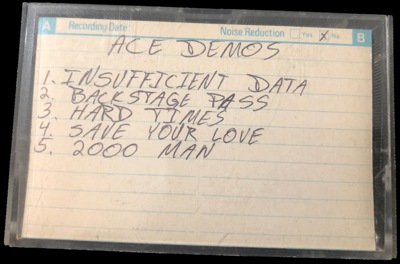 A Recording Date Noise Reduction Yes X No B
ACE DEMOS
1. INSUFFICIENT DATA
2. BACKSTAGE PASS
3. HARD TIMES
4. SAVE YOUR LOVE
5. 2000 MAN